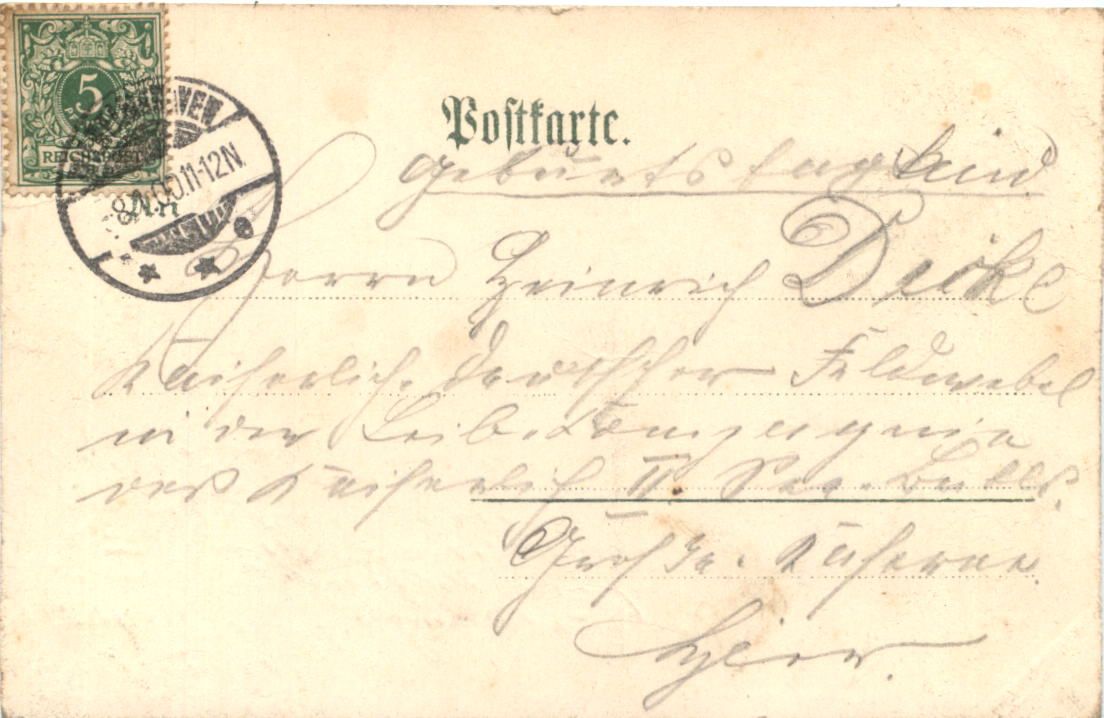 5
REICHSPOST
8. 00. 11-12N.
Postkarte.
Geburtstagskind
An
Herrn Heinrich Deike
Kaiserlich. Deutscher Feldwebel
in der Leib. Compagnie
des Kaiserlich II. See. Batls.
Kaserne.
Hier.